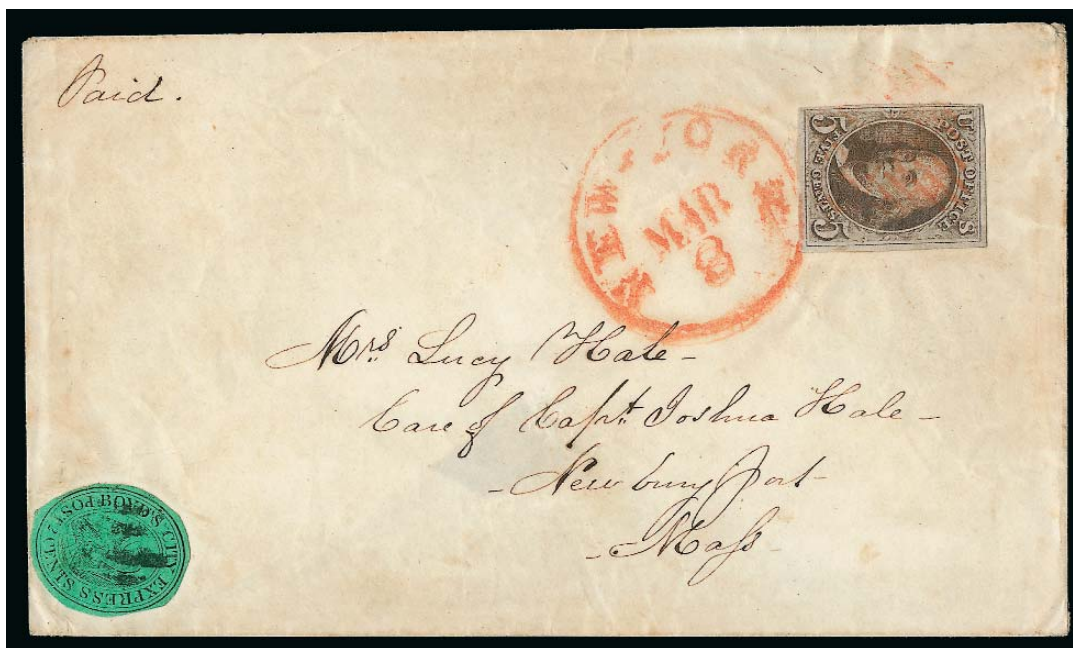 Paid.
NEW-YORK
MAR
8
U S
POST OFFICE
FIVE CENTS
5 5
Mrs Lucy Hale -
Care of Capt. Joshua Hale -
- Newburyport -
- Maſs -
BOYD'S CITY EXPRESS POST 2 CENTS